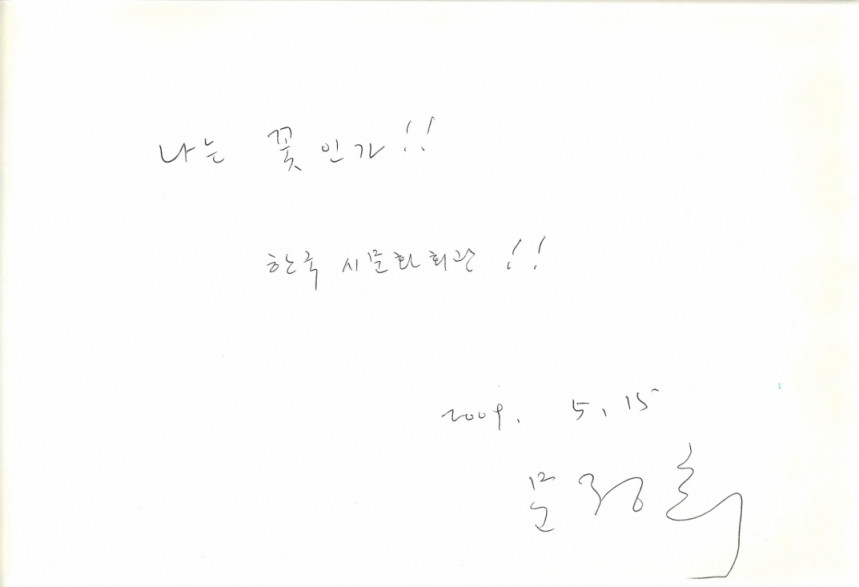 나는 꽃인가!!
한국 시문화회관!!
2009. 5. 15
문정희